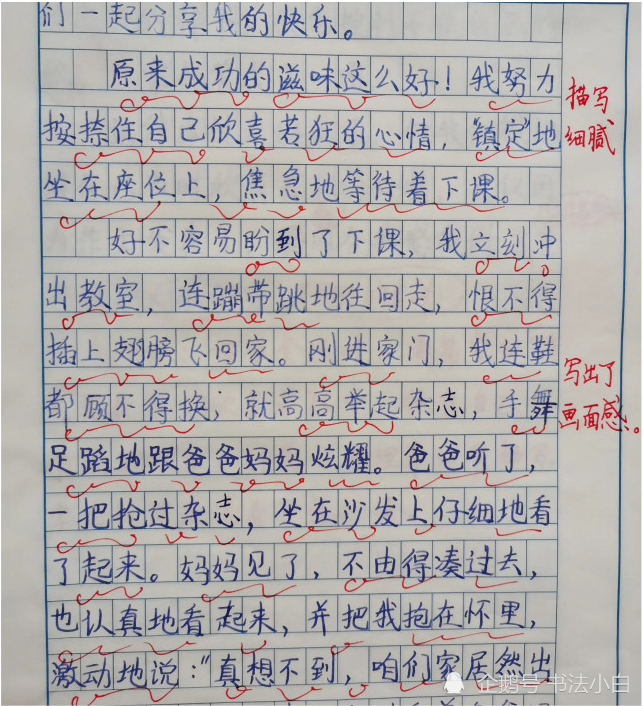 们一起分享我的快乐。
原来成功的滋味这么好！我努力
按捺住自己欣喜若狂的心情，“镇定”地
坐在座位上，焦急地等待着下课。
描写
细腻
好不容易盼到了下课，我立刻冲
出教室，连蹦带跳地往回走，恨不得
插上翅膀飞回家。刚进家门，我连鞋
都顾不得换，就高高举起杂志，手舞
写出了
画面感。
足蹈地跟爸爸妈妈炫耀。爸爸听了，
一把抢过杂志，坐在沙发上仔细地看
了起来。妈妈见了，不由得凑过去，
也认真地看起来，并把我抱在怀里，
激动地说：“真想不到，咱们家居然出
企鹅号 书法小白